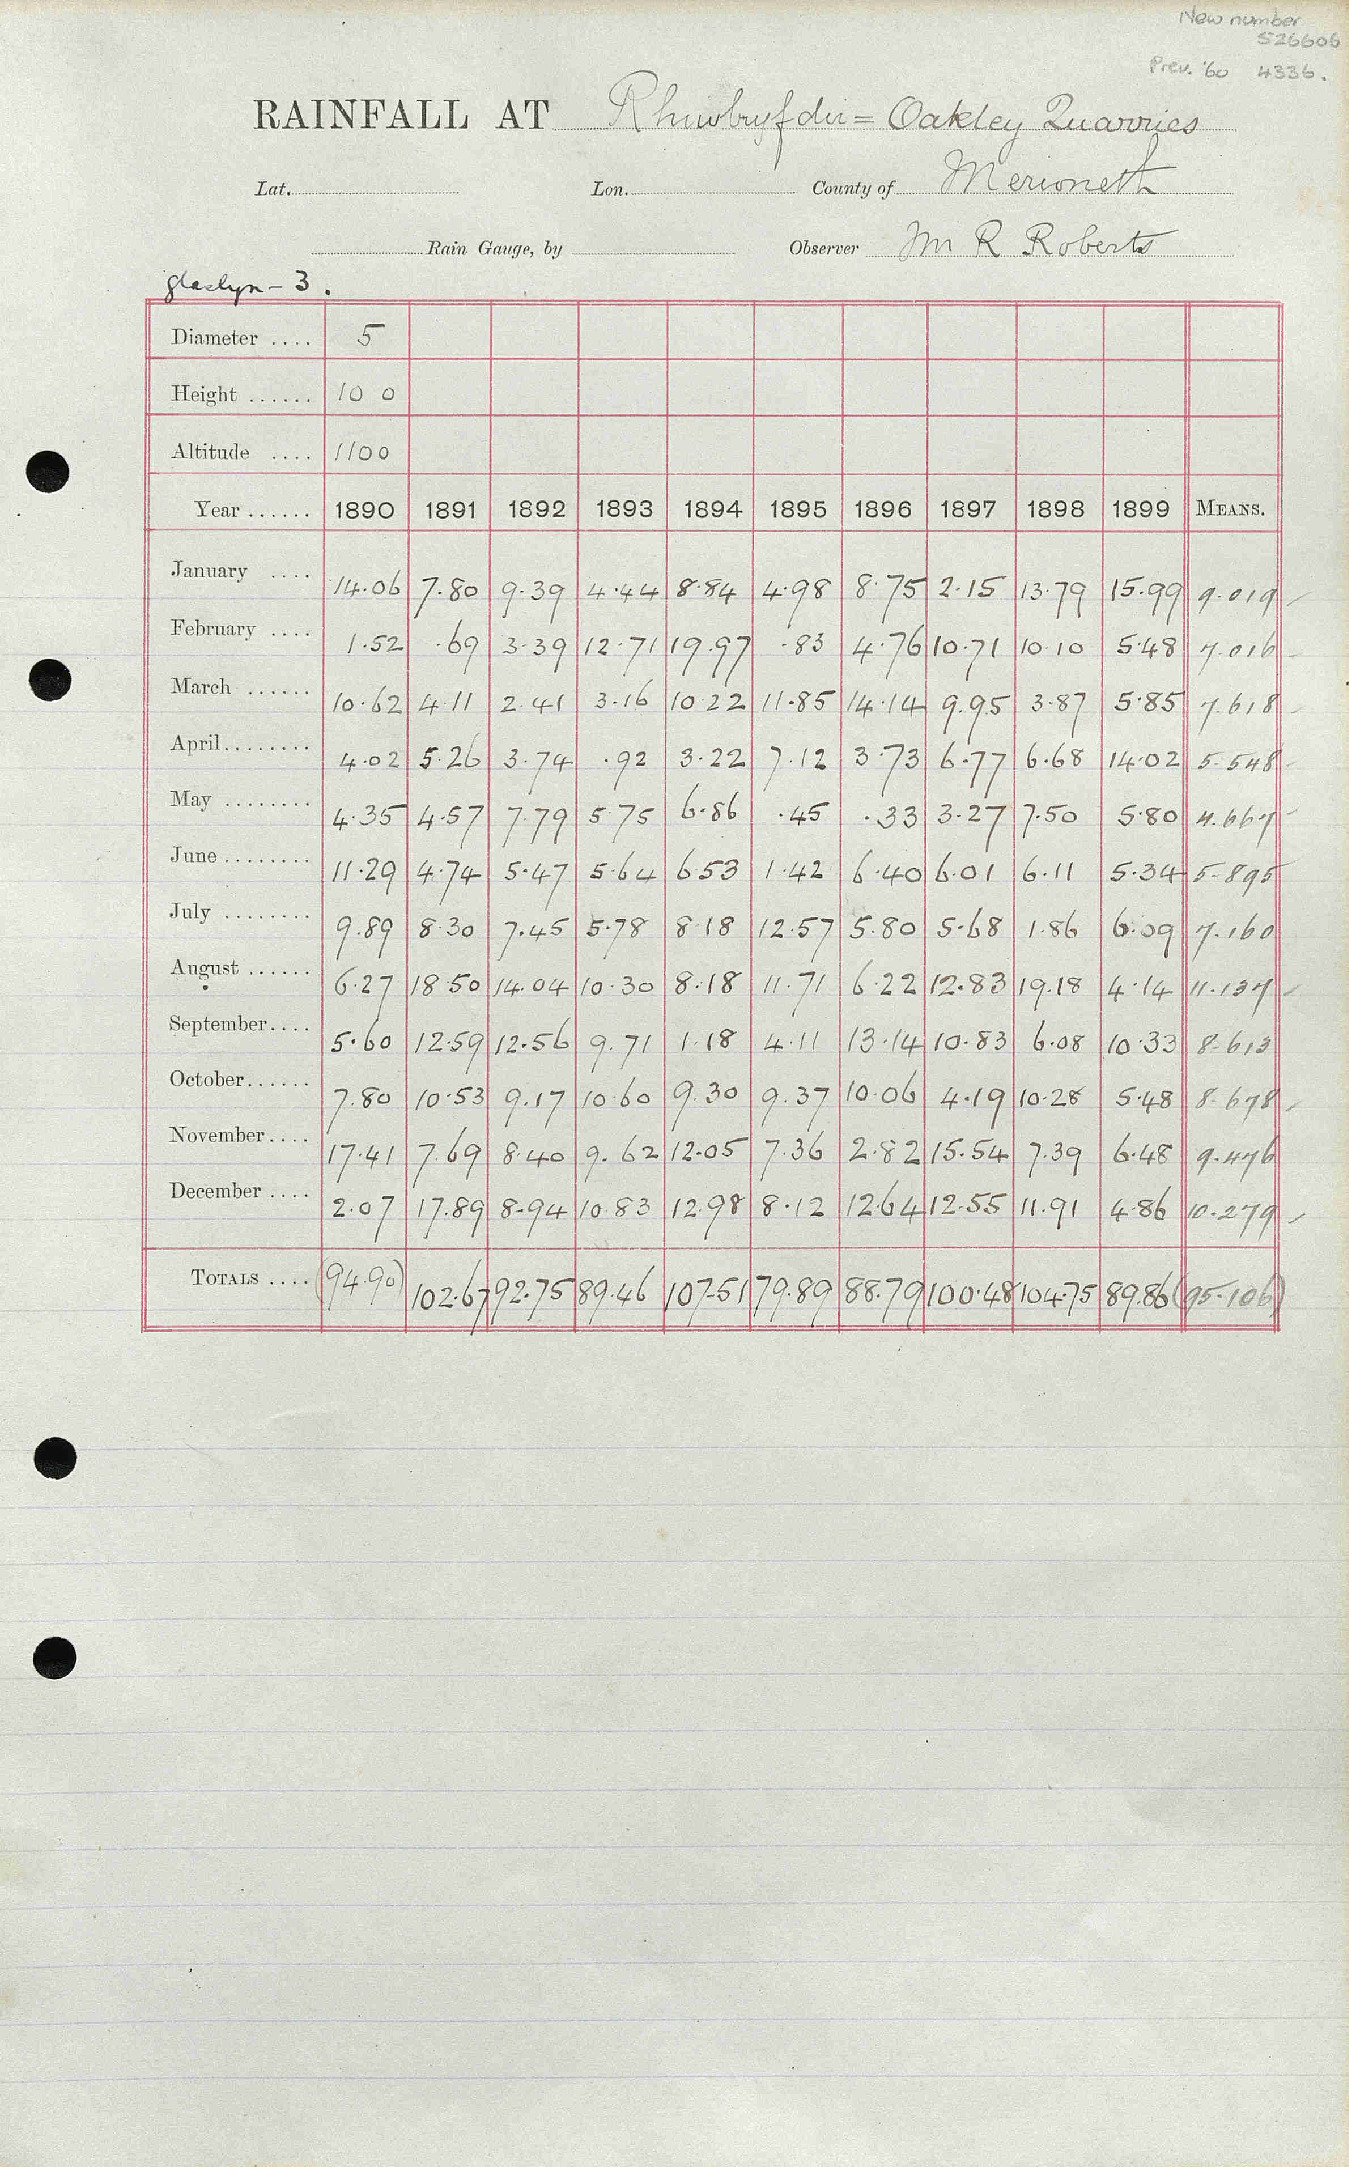 New number
526606
Prev. '60 4336.
RAINFALL AT Rhiwbryfdir = Oakley Quarries
Lat. Lon. County of Merioneth
Rain Gauge, by Observer Mr R Roberts
glaslyn - 3.
Diameter .... 5
Height ...... 10 0
Altitude .... 1100
Year ...... 1890 1891 1892 1893 1894 1895 1896 1897 1898 1899 MEANS.
January .... 14.06 7.80 9.39 4.44 8.84 4.98 8.75 2.15 13.79 15.99 9.019
February .... 1.52 .69 3.39 12.71 19.97 .83 4.76 10.71 10.10 5.48 7.016
March ...... 10.62 4.11 2.41 3.16 10.22 11.85 14.14 9.95 3.87 5.85 7.618
April ........ 4.02 5.26 3.74 .92 3.22 7.12 3.73 6.77 6.68 14.02 5.548
May ........ 4.35 4.57 7.79 5.75 6.86 .45 .33 3.27 7.50 5.80 4.667
June ........ 11.29 4.74 5.47 5.64 6.53 1.42 6.40 6.01 6.11 5.34 5.895
July ........ 9.89 8.30 7.45 5.78 8.18 12.57 5.80 5.68 1.86 6.09 7.160
August ...... 6.27 18.50 14.04 10.30 8.18 11.71 6.22 12.83 19.18 4.14 11.137
September.... 5.60 12.59 12.56 9.71 1.18 4.11 13.14 10.83 6.08 10.33 8.613
October...... 7.80 10.53 9.17 10.60 9.30 9.37 10.06 4.19 10.28 5.48 8.678
November.... 17.41 7.69 8.40 9.62 12.05 7.36 2.82 15.54 7.39 6.48 9.476
December .... 2.07 17.89 8.94 10.83 12.98 8.12 12.64 12.55 11.91 4.86 10.279
TOTALS .... (94.90) 102.67 92.75 89.46 107.51 79.89 88.79 100.48 104.75 89.86 (95.106)